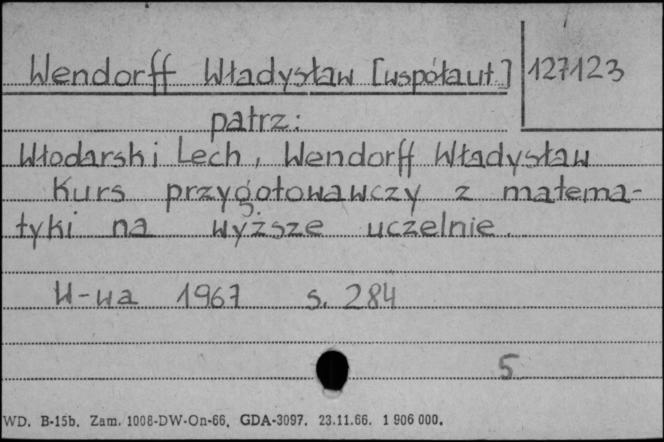 Wendorff Władysław [współaut.] 127123
patrz:
Włodarski Lech, Wendorff Władysław
Kurs przygotowawczy z matema-
tyki na wyższe uczelnie.
W-wa 1967 s. 284
5
WD. B-15b. Zam. 1008-DW-On-66. GDA-3097. 23.11.66. 1 906 000.